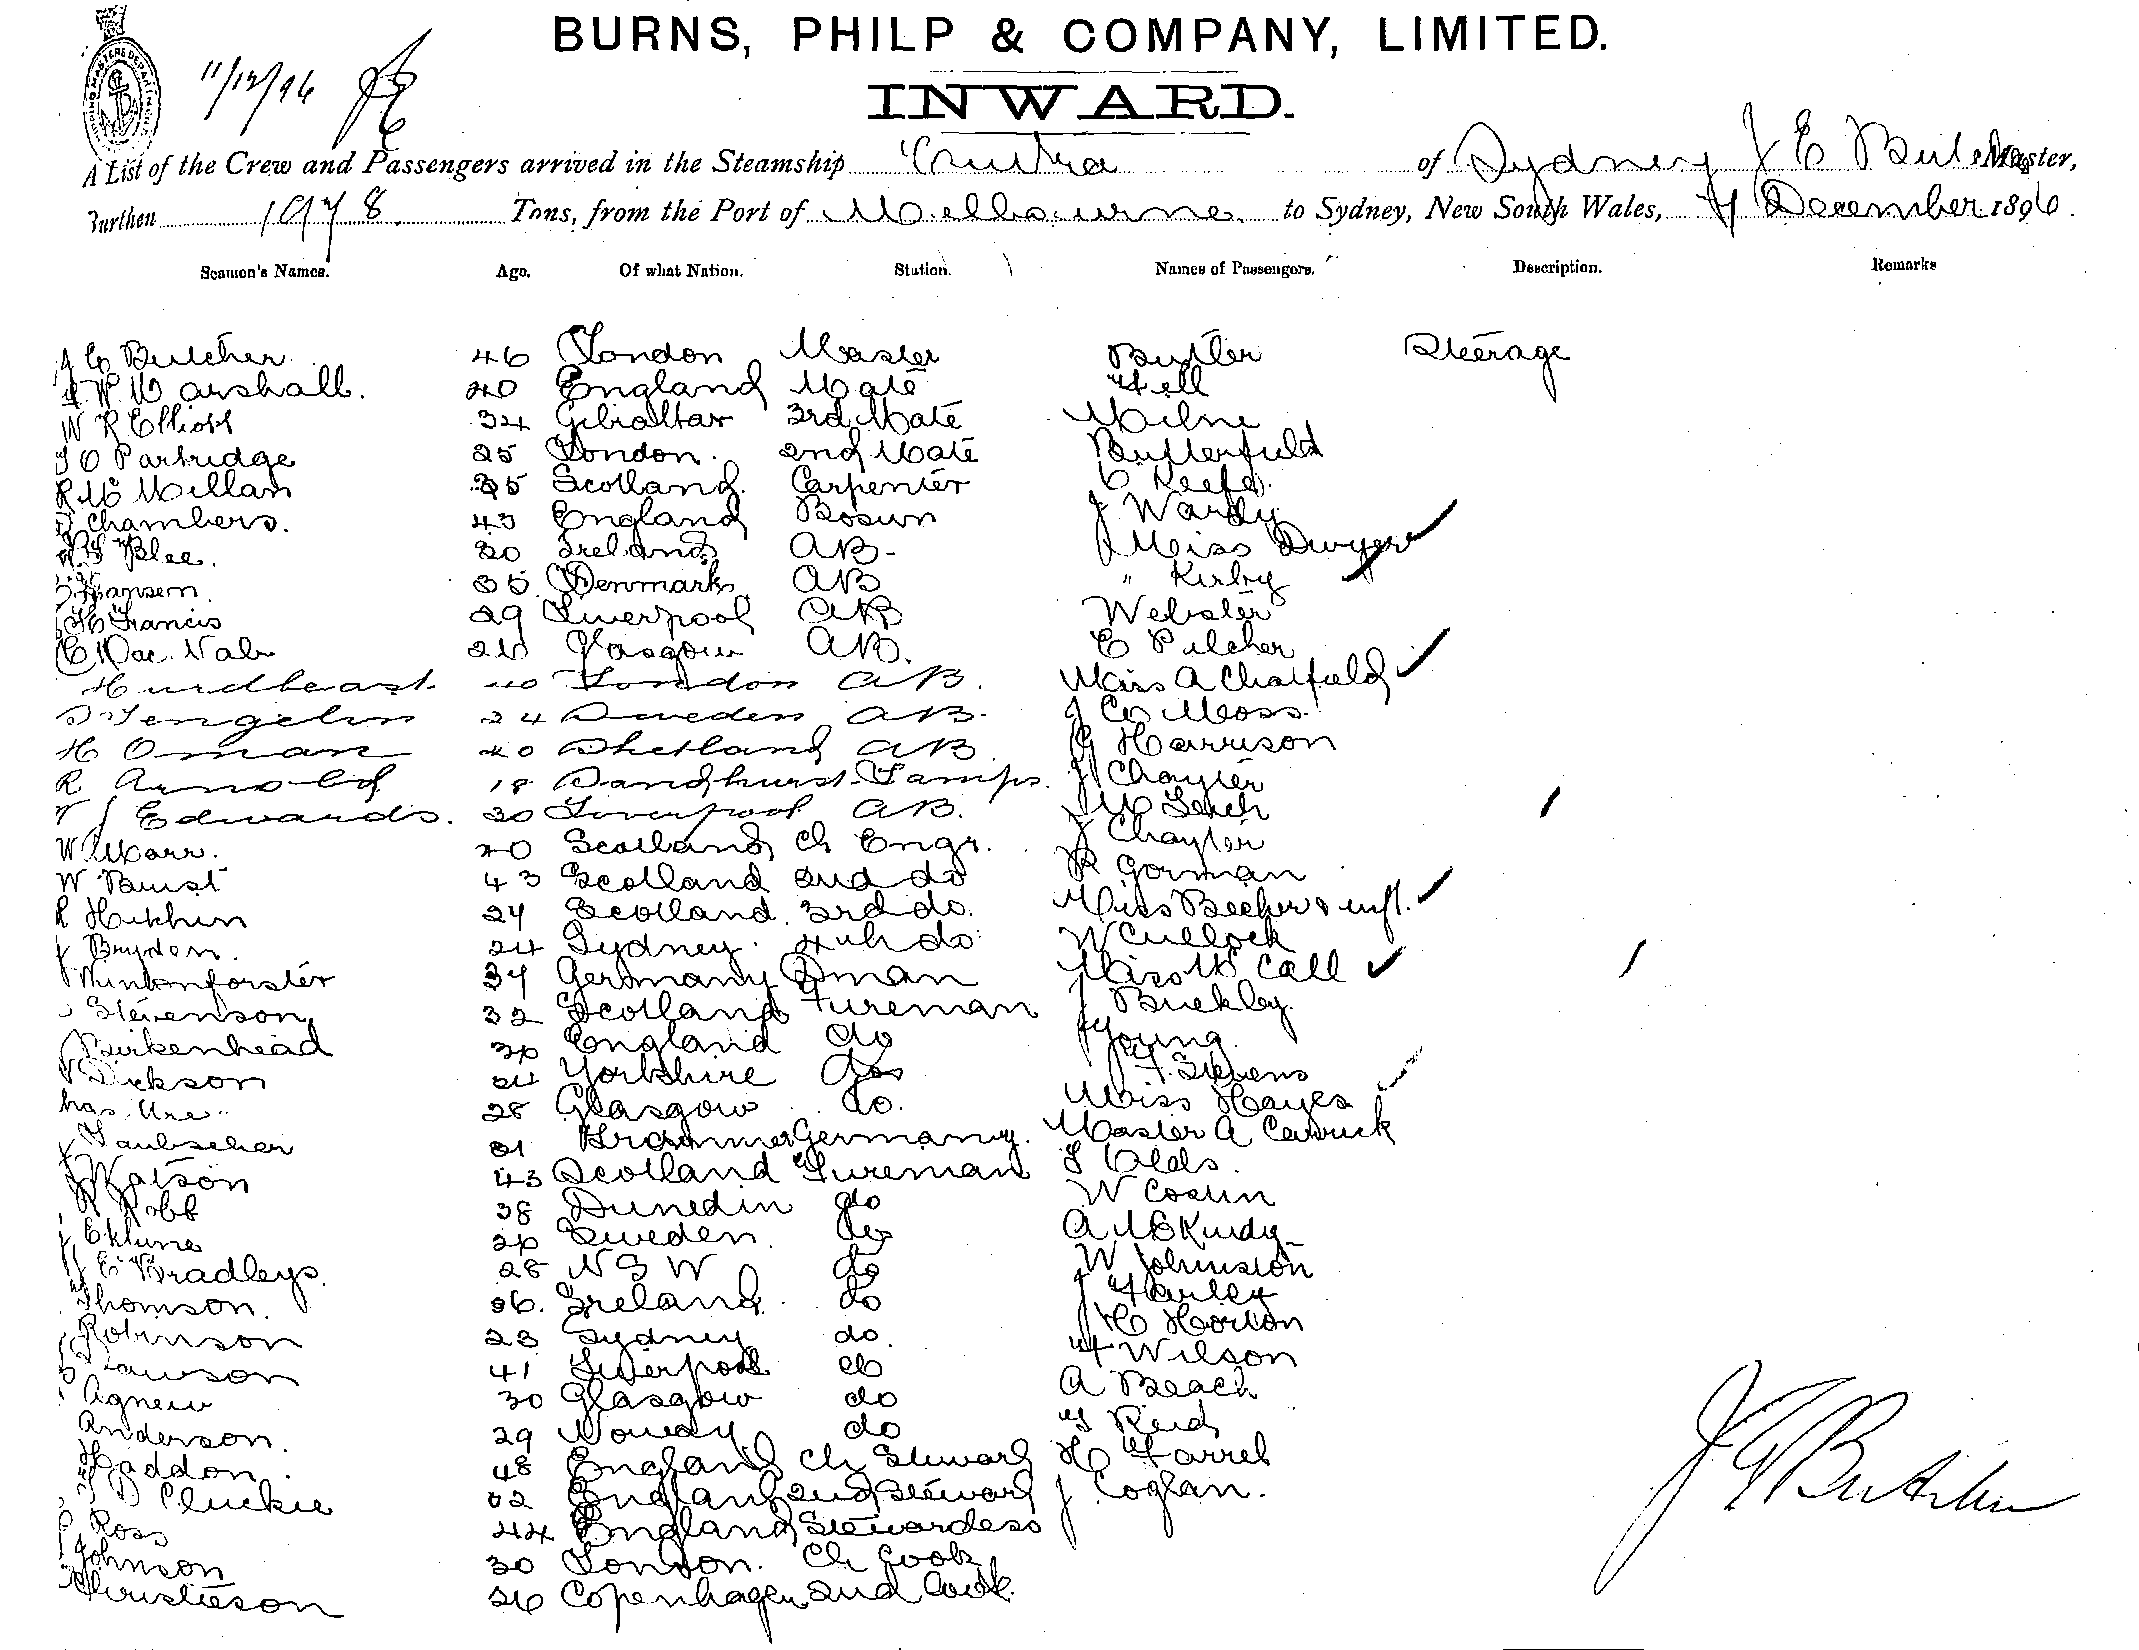 BURNS, PHILP & COMPANY, LIMITED.
11/12/96
INWARD.
A List of the Crew and Passengers arrived in the Steamship of Sydney J E Butcher Master,
Burthen 1978 Tons, from the Port of Melbourne to Sydney, New South Wales, December 1896.
Seamen's Names. Age. Of what Nation. Station. Names of Passengers. Description. Remarks
J E Butcher 46 London Master Butler Steerage
Marshall. 40 England Mate Hell
W R Elliott 34 Gibraltar 3rd Mate Milne
Partridge 25 London. 2nd Mate Butterfield
R Mc Millan 35 Scotland Carpenter O Keefe.
Chambers. 43 England Bosun J Wardy
Blee. 30 Ireland AB- Miss Dwyer
Hansen. 35 Denmark AB " Kirby
Francis 29 Liverpool AB Webster
Mac Nab Glasgow AB. E Pilcher
40 London AB. Miss A Chatfield
24 Sweden AB. J Moss
H Oman 40 Shetland AB Harrison
R Arnold 18 Sandhurst Lamps. J Chayter
J Edwards. 30 Liverpool AB. Mc Leich
W Marr. 40 Scotland Ch Engr. J Chayter
W 43 Scotland 2nd do R Gorman
R 27 Scotland. 3rd do. Miss Becher & inft.
J Bryden. 24 Sydney 4th do W Cullock
37 Germany Dman Miss Mc Call
Stevenson 32 Scotland Fireman J Buckley.
Birkenhead England do J Young
Dickson Yorkshire do Stevens
28 Glasgow do. Miss Hayes
31 Germany. Master A Carrick
Watson 43 Scotland Fireman Olds.
Robb 38 Dunedin do W Costin
Sweden. do A McKurdy
E Bradleys. 28 N S W do W Johnston
Thomson. 36. Ireland do J Harley
Robinson 23 Sydney do. H Horton
Lawson 41 Liverpool do Wilson
Agnew 30 Glasgow do A Beach
Anderson. 29 Norway do Reid
Haddon. 48 England Ch Steward H Farrel
Cluckie 52 England 2nd Steward J Coglan.
Ross 44 England Stewardess
Johnson 30 London. Ch Cook
Christieson 26 Copenhagen 2nd Cook.
J E Butcher